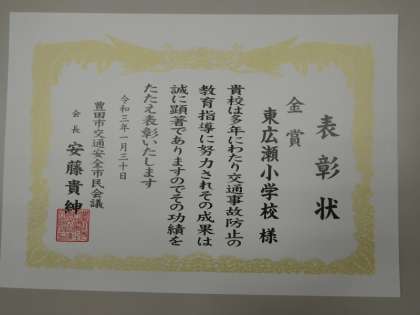 表彰状
金賞
東広瀬小学校 様
貴校は多年にわたり交通事故防止の
教育指導に努力されその成果は
誠に顕著でありますのでその功績を
たたえ表彰いたします
令和三年一月三十日
豊田市交通安全市民会議
会長 安藤貴紳